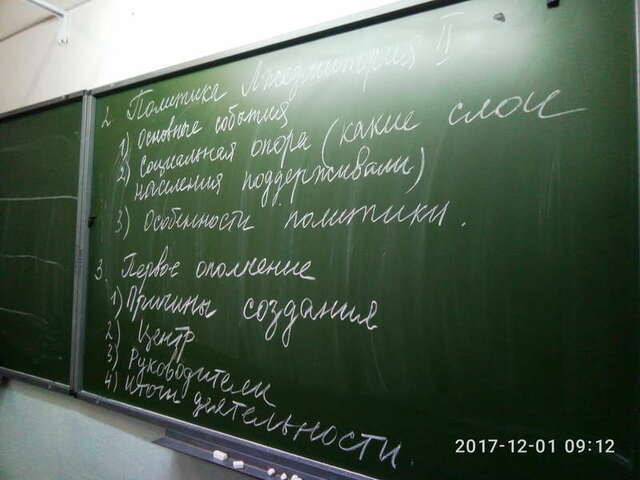 2. Политика Лжедмитрия II
1) Основные события
2) Социальная опора (какие слои
населения поддерживали)
3) Особенности политики.
3. Первое ополчение
1) Причины создания
2) Центр
3) Руководители
4) Итоги деятельности.
2017-12-01 09:12